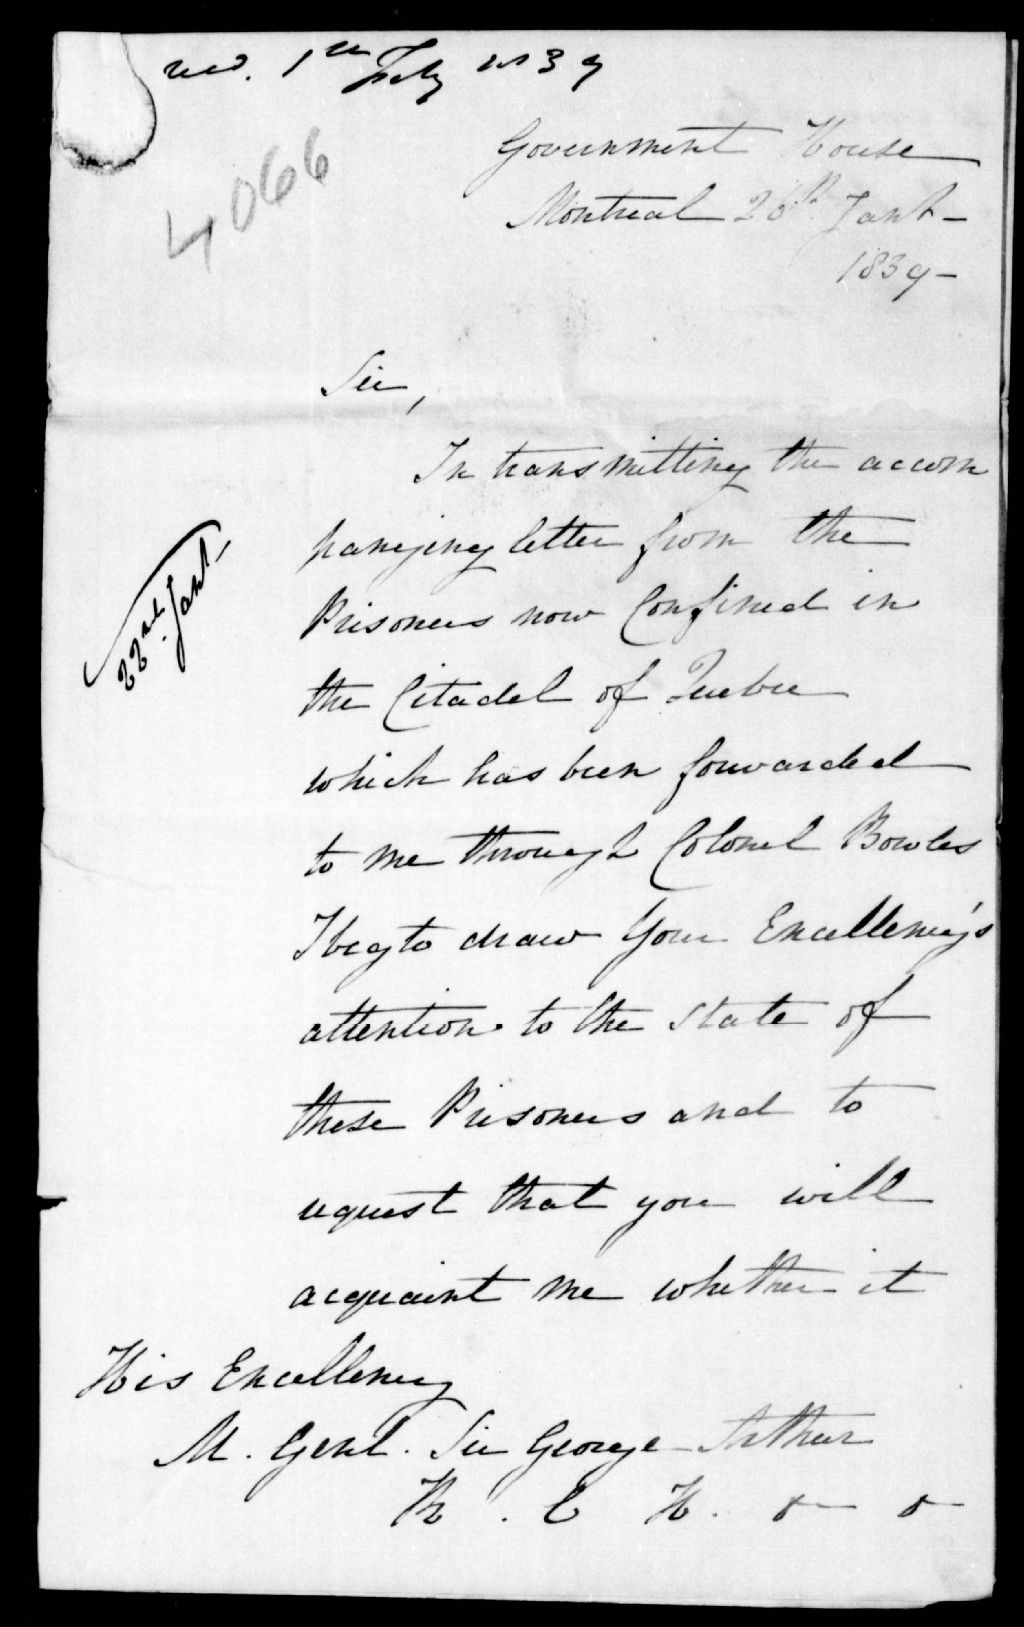 recd. 1st Feby 1839
4066
Government House
Montreal 26th Jany
1839
Sir,
In transmitting the accom
panying letter from the
Prisoners now Confined in
22nd Jany
the Citadel of Quebec
which has been forwarded
to me through Colonel Bowles
I beg to draw Your Excellency's
attention to the state of
these Prisoners and to
request that you will
acquaint me whether it
His Excellency
M. Genl. Sir George Arthur
K. C. H.